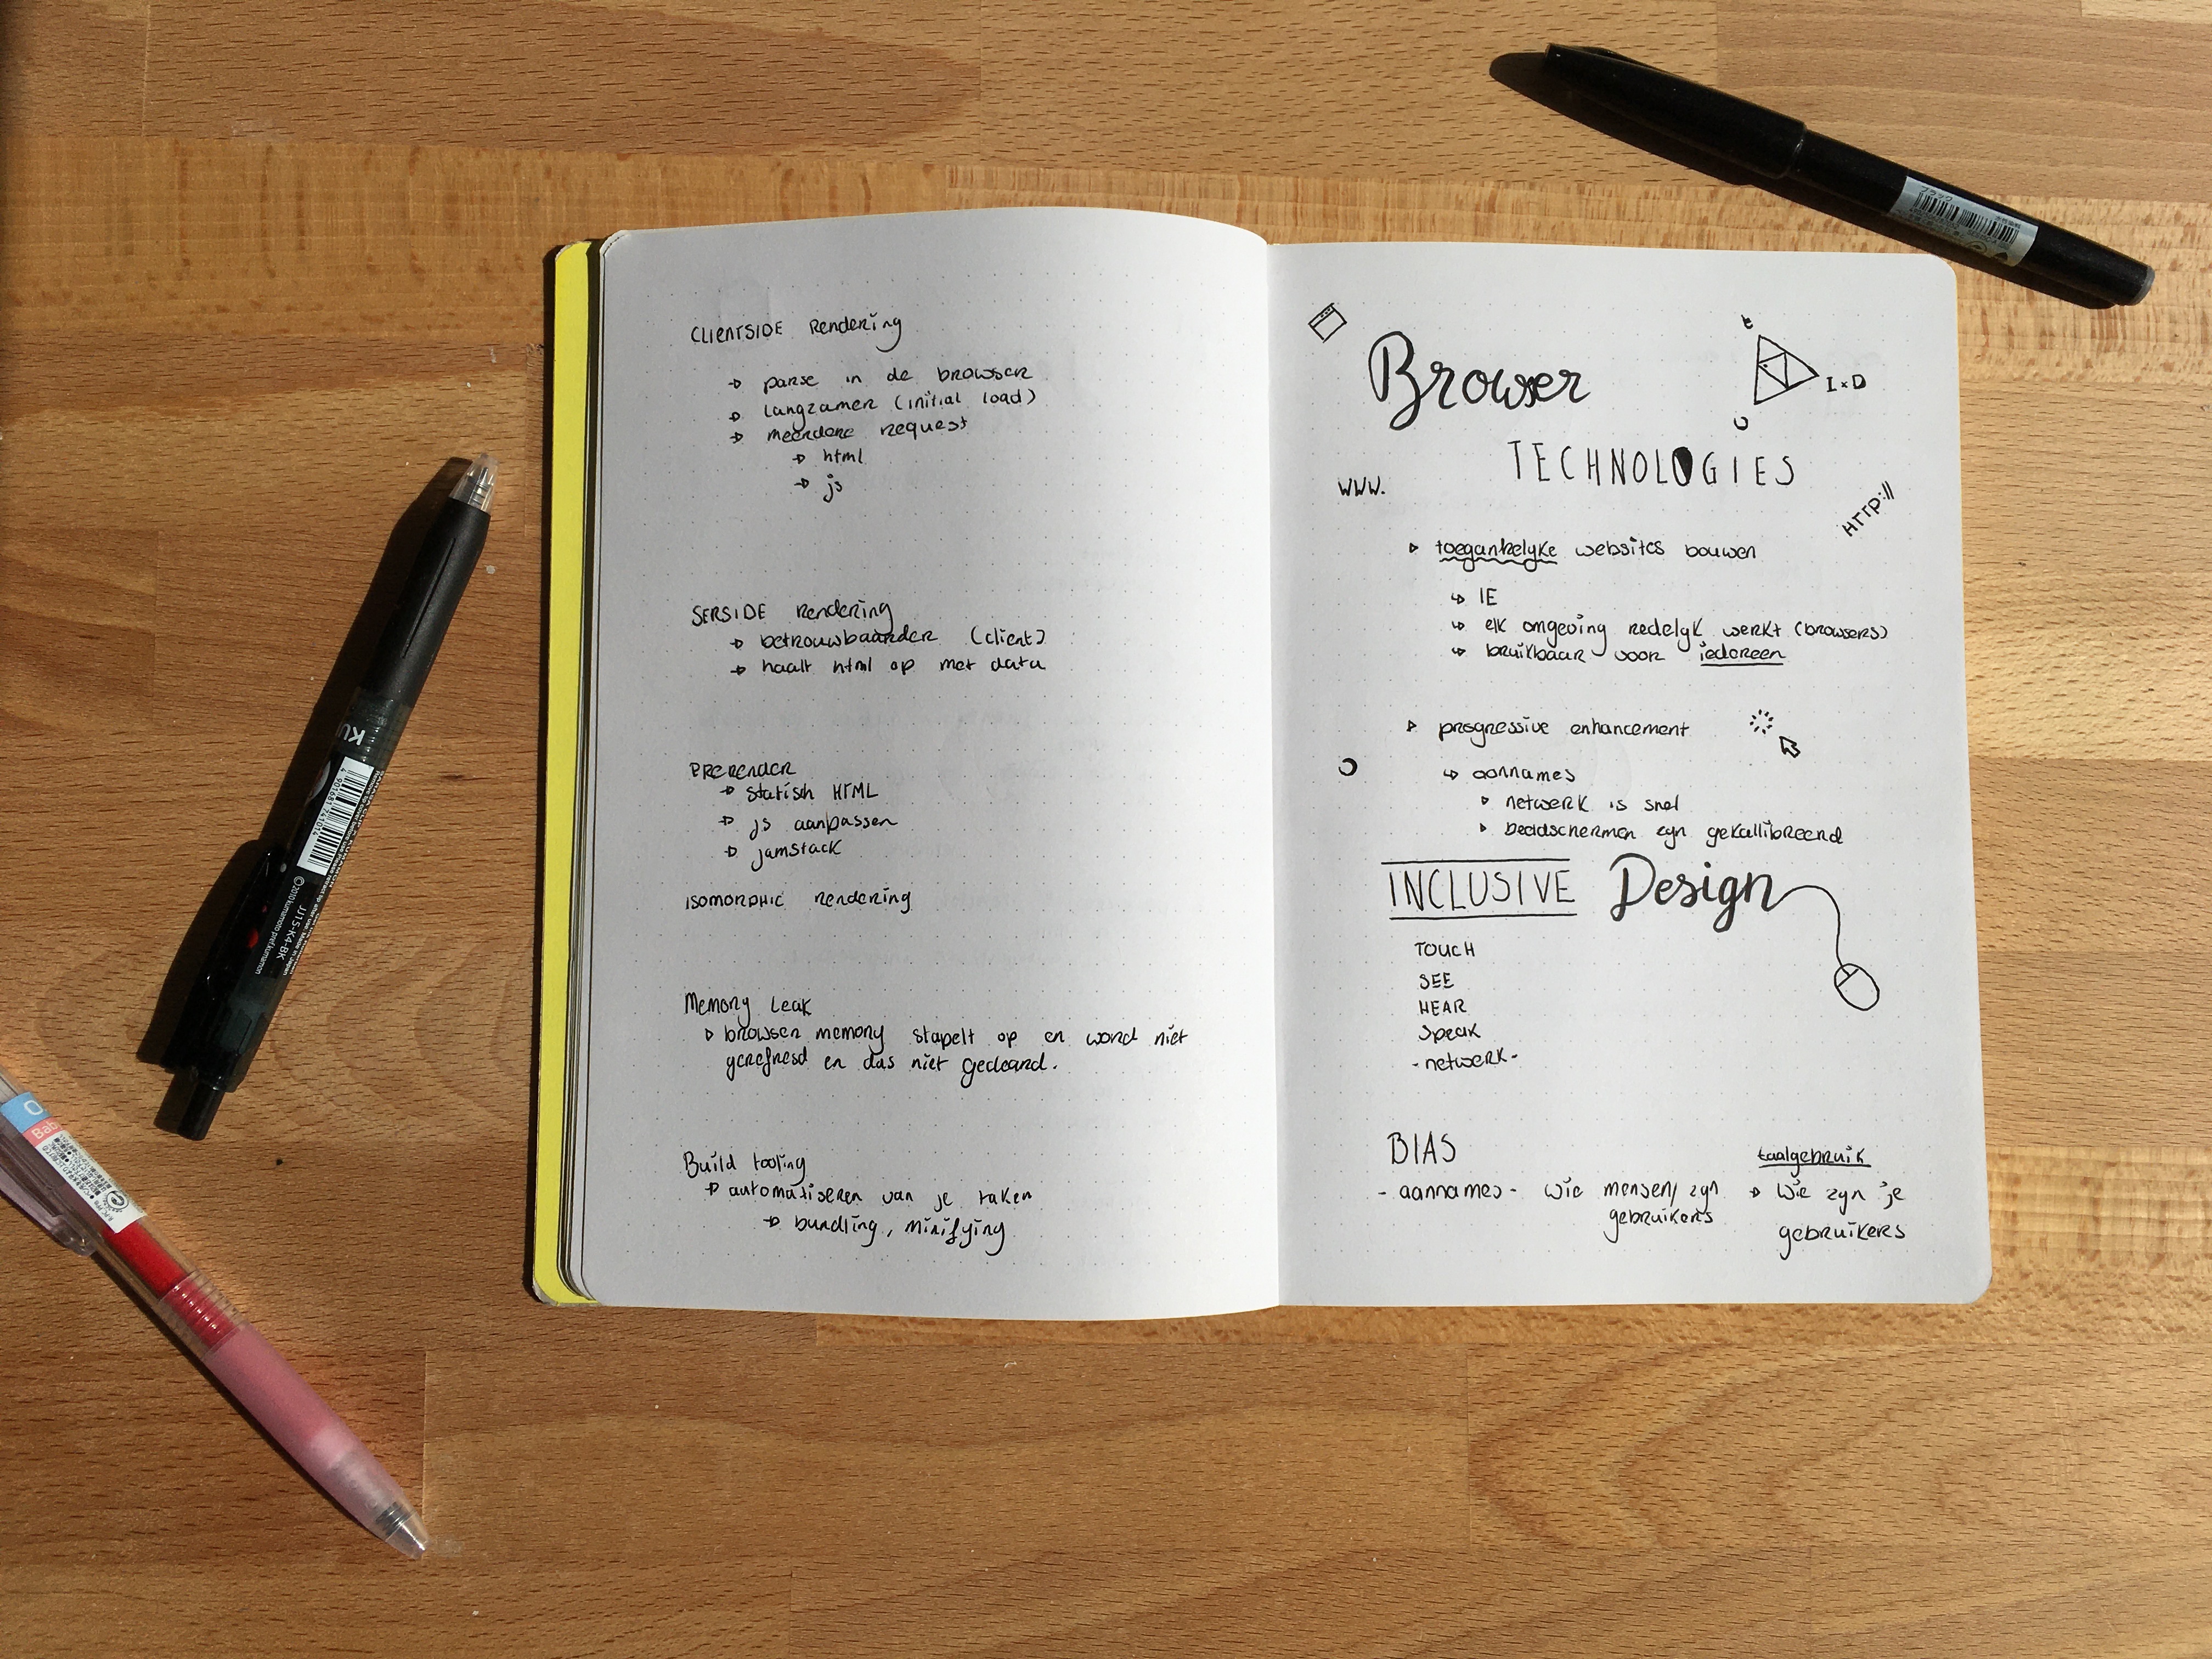 CLIENTSIDE rendering
→ parse in de browser
→ langzamer (initial load)
→ meerdere request
→ html
→ js
SERSIDE rendering
→ betrouwbaarder (client)
→ haalt html op met data
PRERENDER
→ statisch HTML
→ js aanpassen
→ jamstack
ISOMORPHIC rendering
Memory Leak
browser memory stapelt op en word niet
gerefresd en das niet gecleand.
Build tooling
→ automatiseren van je taken
→ bundling, minifying
Browser
TECHNOLOGIES
t
IxD
www.
HTTP://
toegankelyke websites bouwen
↳ IE
↳ elk omgeving redelyk werkt (browsers)
↳ bruikbaar voor iedereen
progressive enhancement
↳ aannames
netwerk is snel
beeldschermen zyn gekallibreerd
INCLUSIVE Design
TOUCH
SEE
HEAR
Speak
- netwerk -
BIAS
- aannames - wie mensen/zyn
gebruikers
taalgebruik
→ Wie zyn je
gebruikers
KU
4 901681 741014
©2010 kumamoto pref.kumamon
JJ15-K4-BK
ブラック
Bab